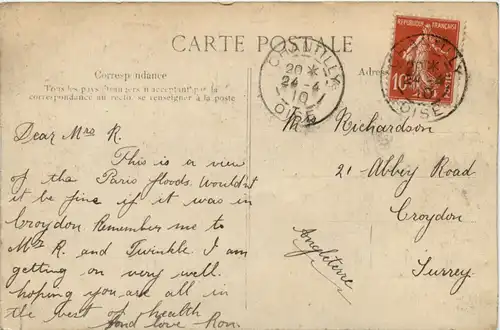 CARTE POSTALE
Correspondance
Tous les pays étrangers n'acceptant pas la
correspondance au recto se renseigner à la poste
Dear Mrs R.
This is a view
of the Paris floods. Wouldn't
it be fine if it was in
Croydon. Remember me to
Mr R. and Twinkle. I am
getting on very well.
hoping you are all in
the best of health
fond love Ron.
Adres
REPUBLIQUE FRANÇAISE
10
CHANTILLY
20 *
24-4
10
OISE
CHANTILLY
20 *
24-4
10
OISE
Richardson
21 Abbey Road
Croydon
Surrey.
Angleterre